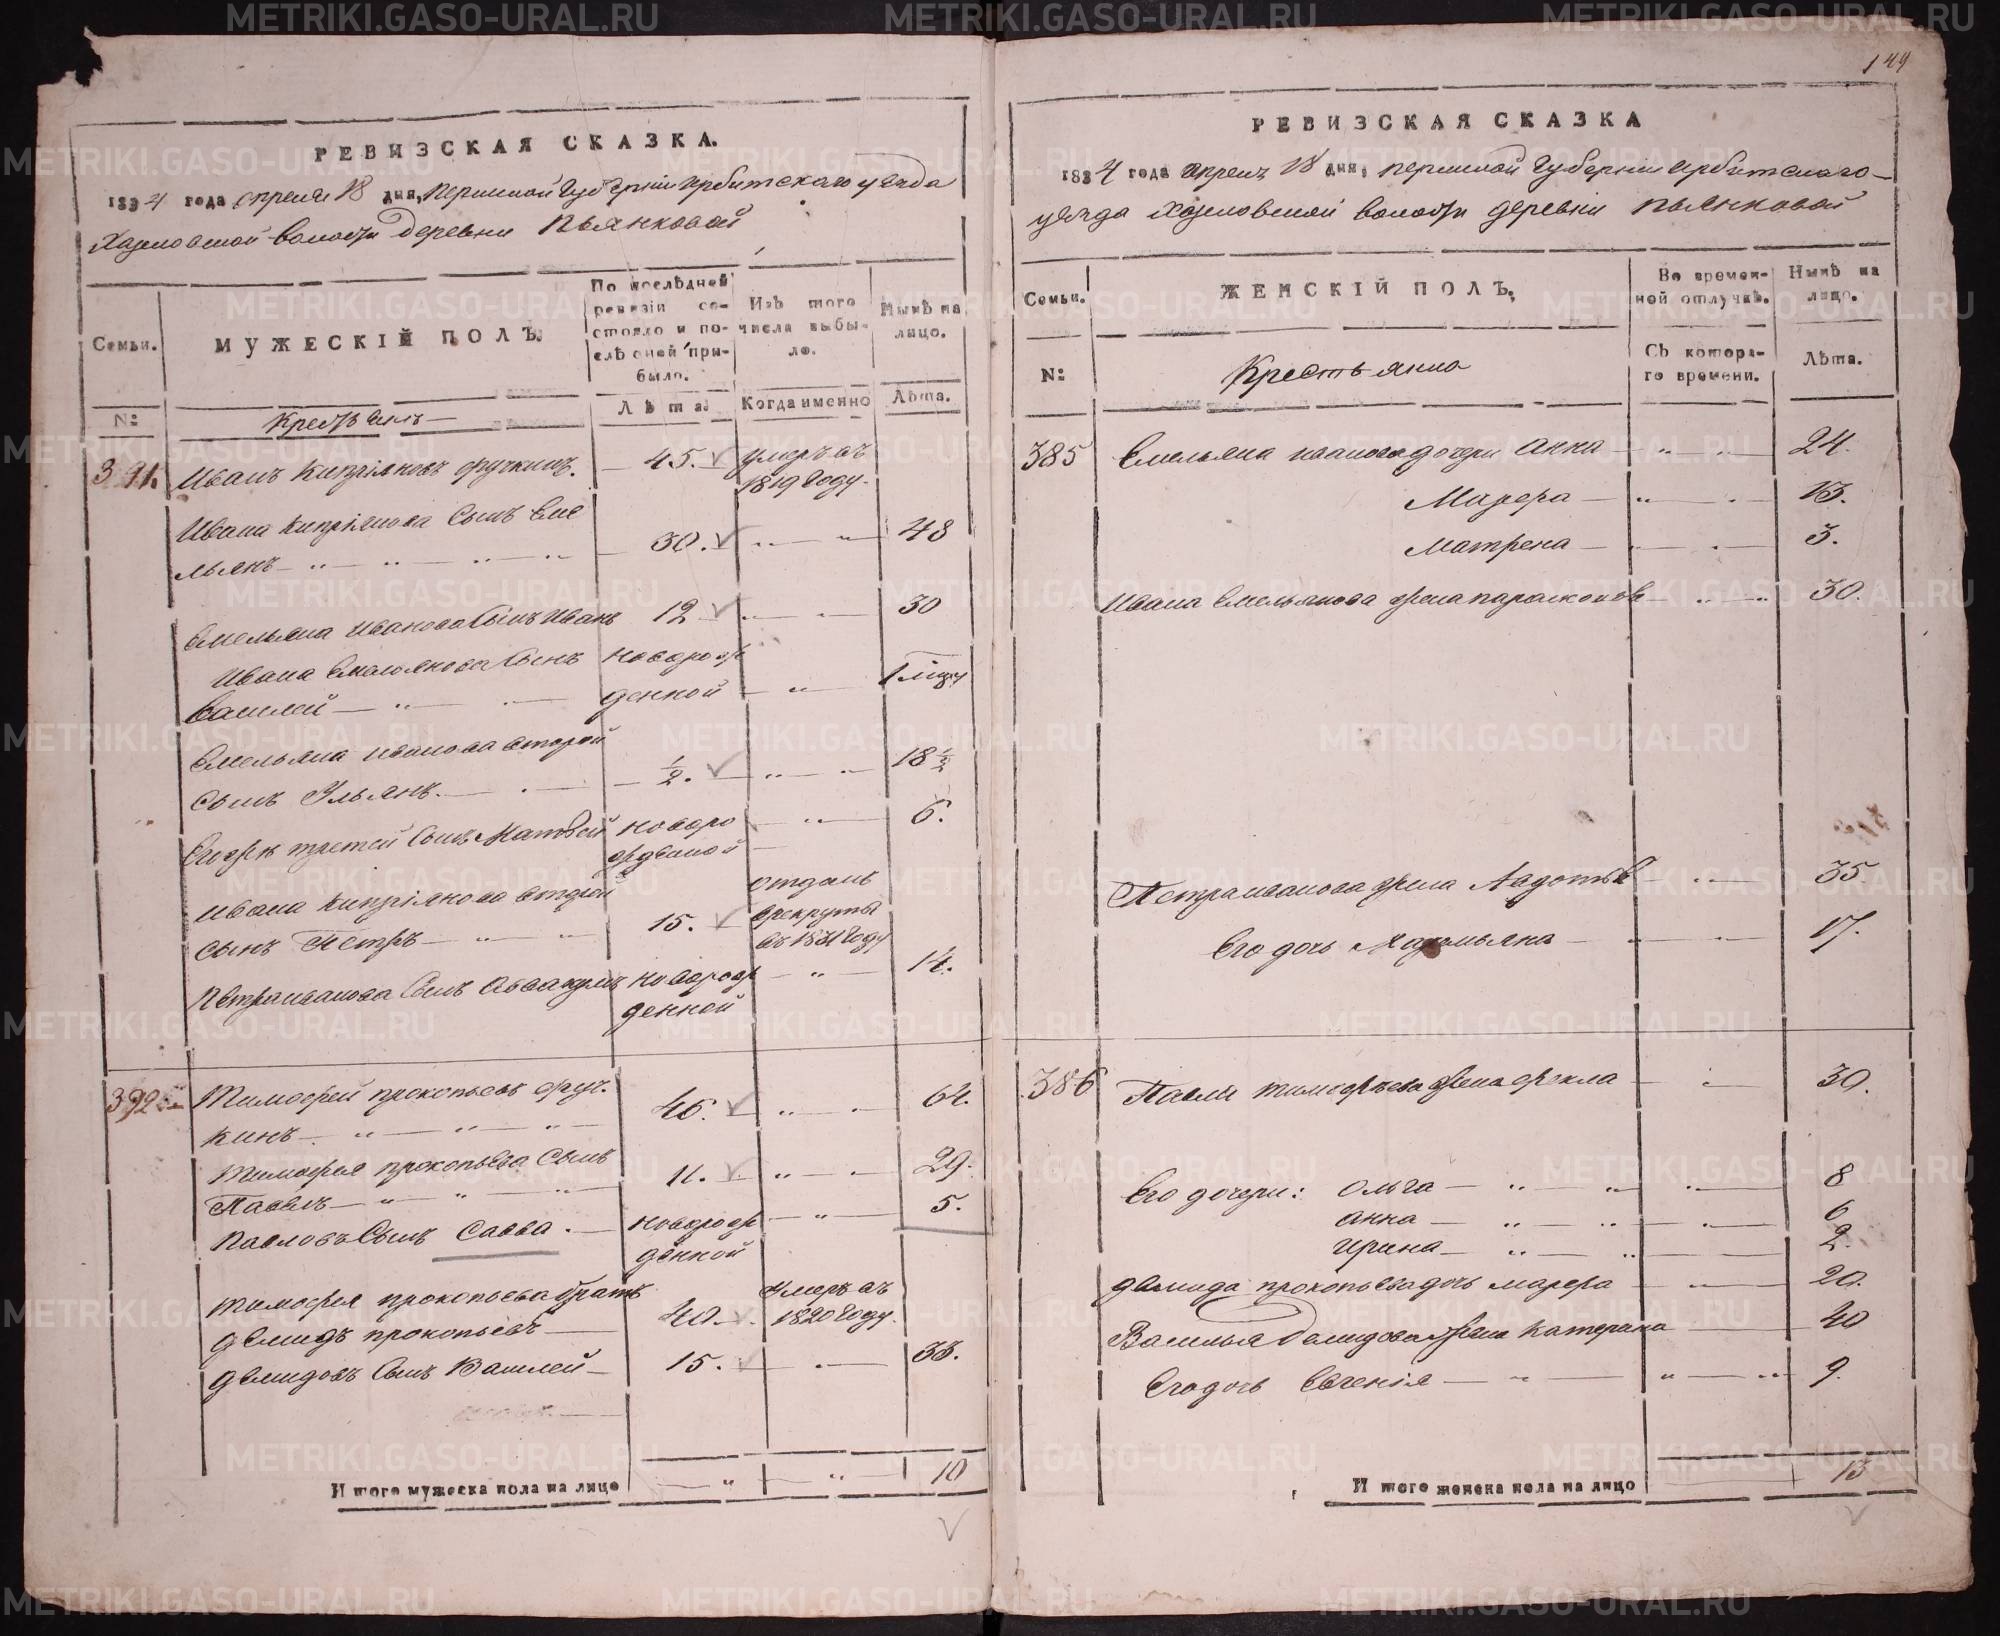 РЕВИЗСКАЯ СКАЗКА.
1834 года апреля 18 дня, Пермской Губернiи Ирбитскаго уезда
волости деревни Пьянковой
Семьи.
№:
МУЖЕСКIЙ ПОЛЪ.
По послѣдней ревизiи состояло и послѣ оной прибыло.
Изъ того числа выбыло.
Нынѣ на лицо.
Крестьянъ
Лѣта.
Когда именно
Лѣта.
391. Иванъ Кипрiяновъ Фучкинъ. 45. умеръ въ
1819 году.
Ивана Кипрiянова сынъ Еме
льянъ 30. 48
Емельяна Иванова сынъ Иванъ 12 30
Ивана Емельянова сынъ новорож
Василей денной 1
Емельяна Иванова второй
сынъ Ульянъ. 1/2. 18 1/2
Егожъ третей сынъ Матвей новоро 6.
жденной
Ивана Кипрiянова второй отданъ
сынъ Петръ 15. в рекруты
въ 1831 году
Петра Иванова сынъ Аввакумъ новорож 14.
денной
392 Тимофей Прокопьевъ Фуч.
кинъ 46. 64.
Тимофея Прокопьева сынъ
Павелъ 11. 29.
Павловъ сынъ Савва. новорож 5.
денной
Тимофея Прокопьева братъ умеръ въ
Демидъ Прокопьевъ 40. 1820 году.
Демидовъ сынъ Василей 15. 33.
Итого мужеска пола на лицо 10
149
РЕВИЗСКАЯ СКАЗКА
1834 года апреля 18 дня, Пермской Губернiи Ирбитскаго
уезда волости деревни Пьянковой
Семьи.
№:
ЖЕНСКIЙ ПОЛЪ.
Во временной отлучкѣ.
Нынѣ на лицо.
Крестьянка
Съ котораго времени.
Лѣта.
385 Емельяна Иванова дочери Анна 24.
Марфа 13.
Матрена 3.
Ивана Емельянова жена Парасковья 30.
Петра Иванова жена Авдотья 35.
Его дочь 17.
386 Павла Тимофеева жена Фекла 30.
Его дочери: Ольга 8
Анна 6
Ирина 2.
Демида Прокопьева дочь Марфа 20.
Василья Демидова жена Катерина 40
Его дочь Евгенiя 9.
Итого женска пола на лицо 13
METRIKI.GASO-URAL.RU